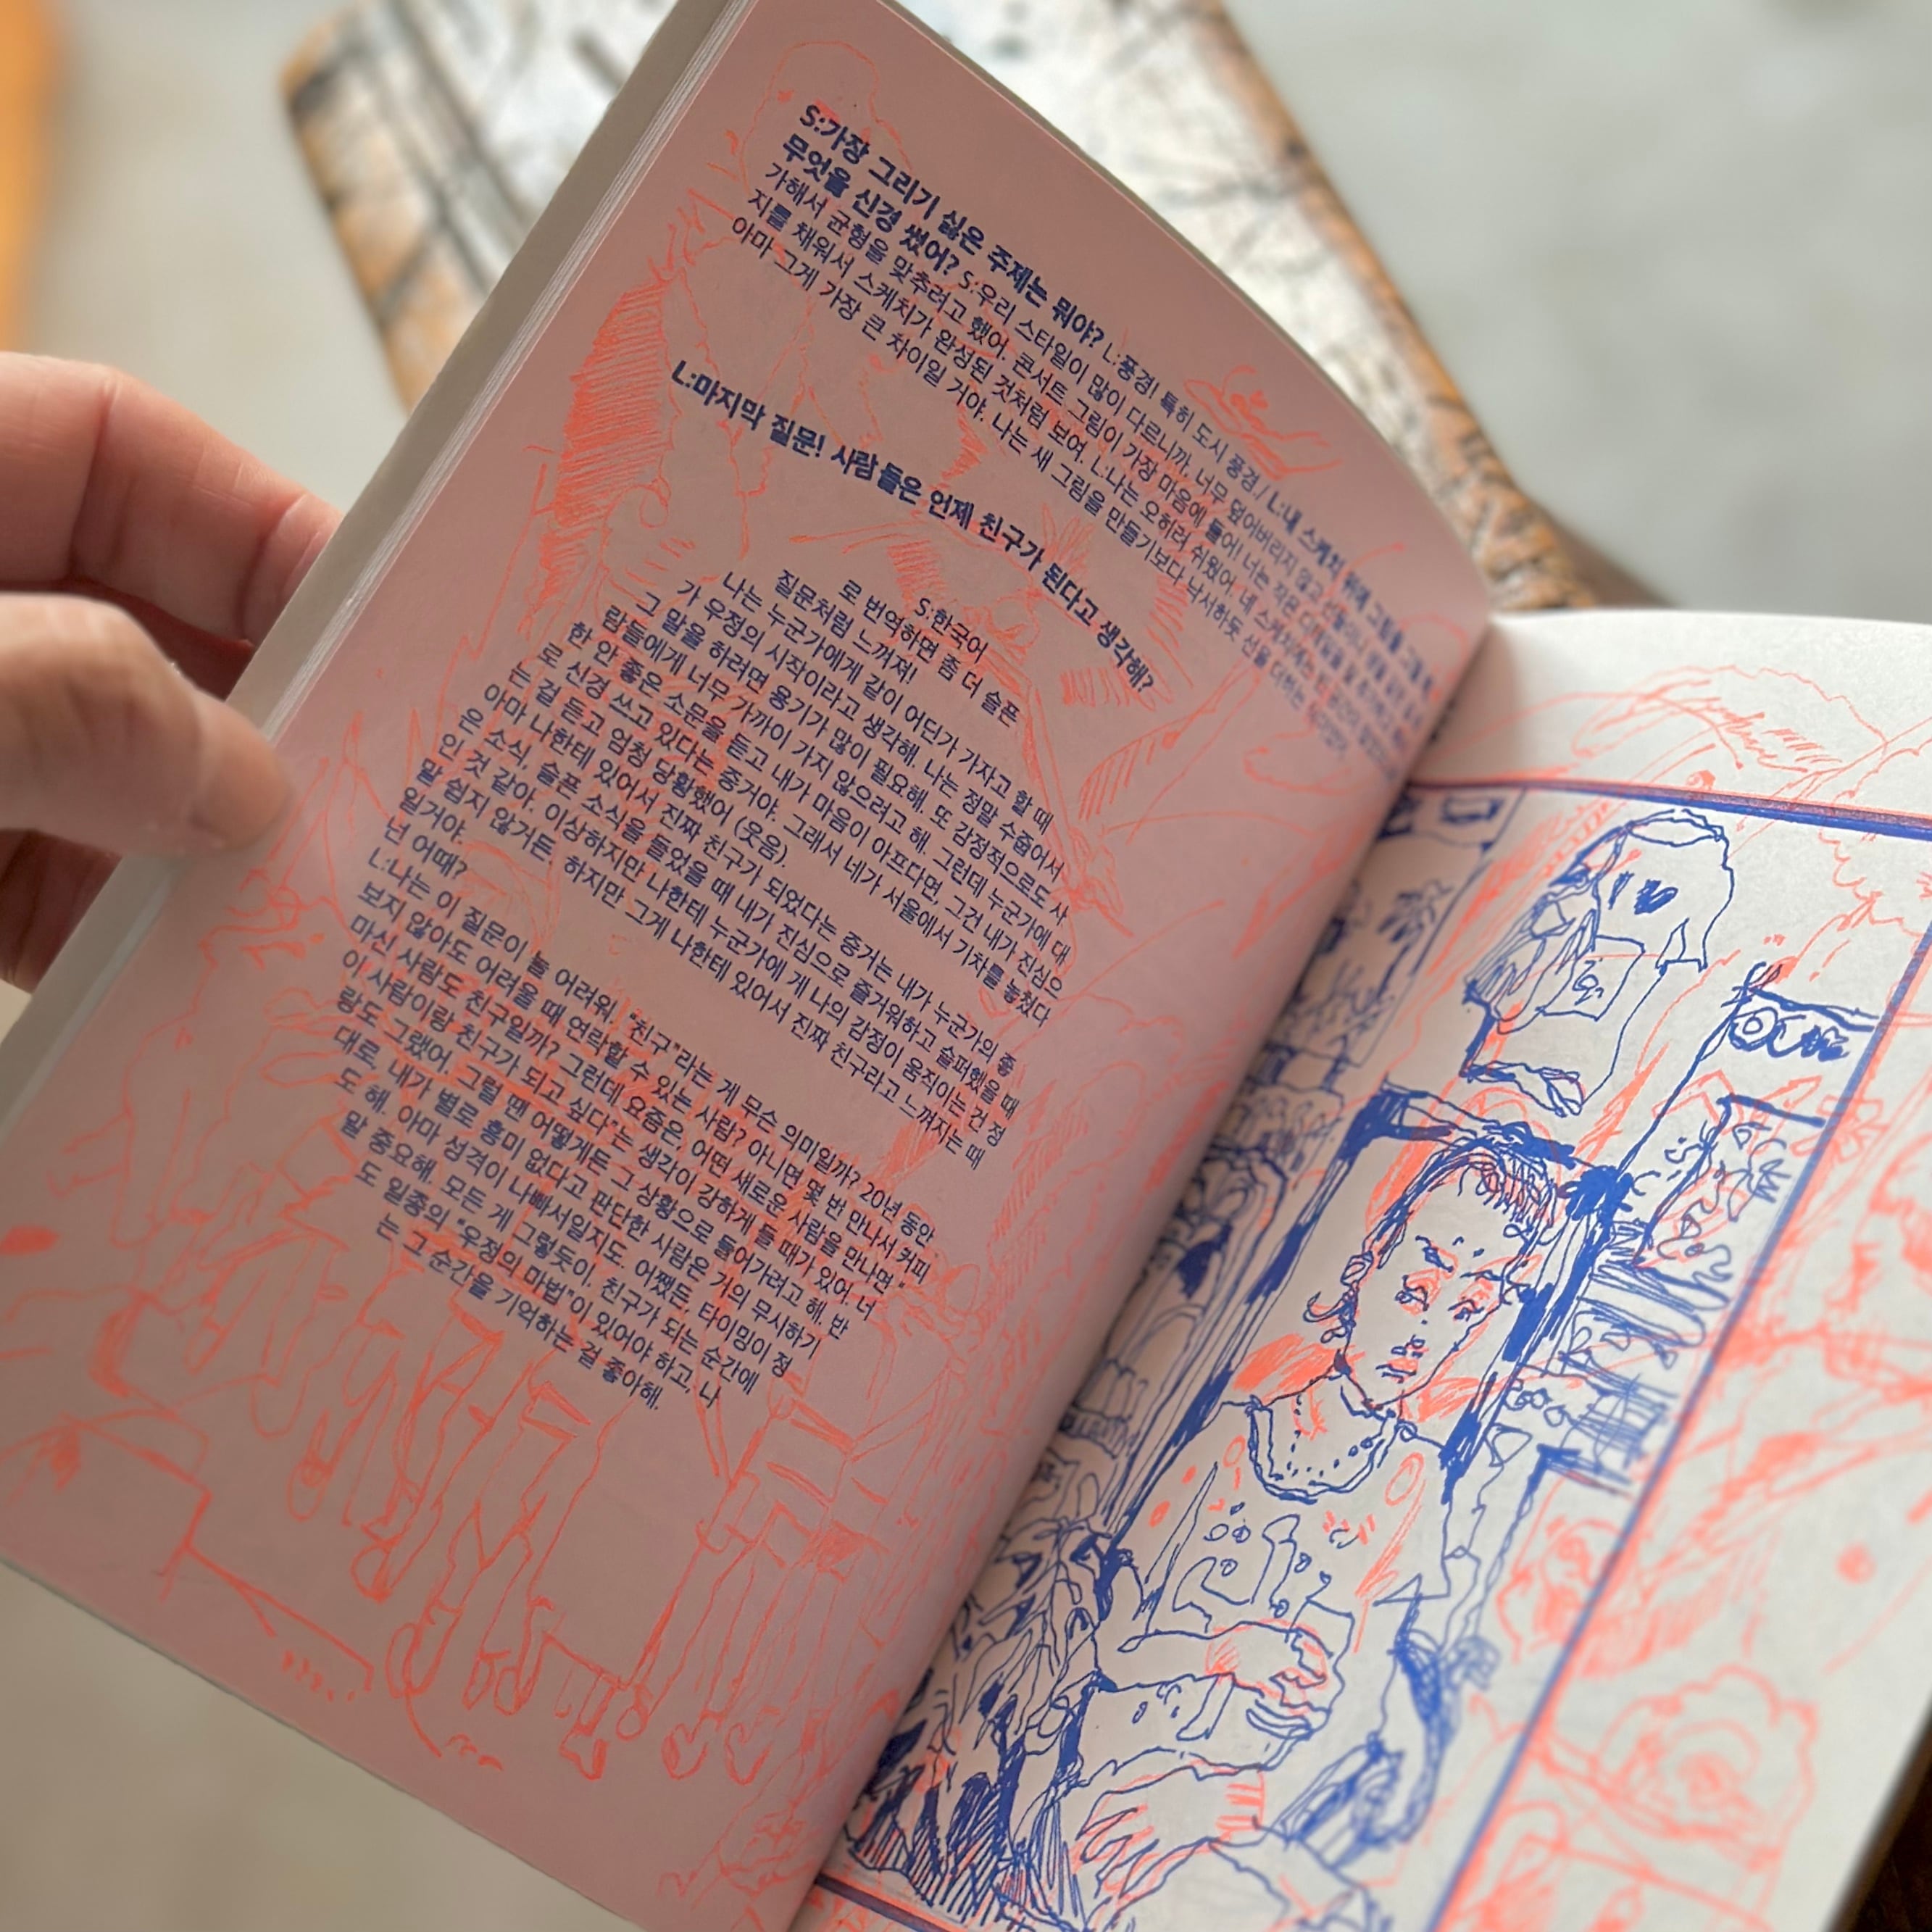 S:가장 그리기 싫은 주제는 뭐야? L:풍경! 특히 도시 풍경./ L:내 스케치 위에 그림을 그릴 때
무엇을 신경 썼어? S:우리 스타일이 많이 다르니까, 너무 덮어버리지 않고 선들이나
가해서 균형을 맞추려고 했어. 콘서트 그림이 가장 마음에 들어! 너는 작은 디테일들
지를 채워서 스케치가 완성된 것처럼 보여. L:나는 오히려 쉬웠어. 네 스케치에는
아마 그게 가장 큰 차이일 거야. 나는 새 그림을 만들기보다 낙서하듯 선을 더하는
L:마지막 질문! 사람들은 언제 친구가 된다고 생각해?
S:한국어
로 번역하면 좀 더 슬픈
질문처럼 느껴져!
나는 누군가에게 같이 어딘가 가자고 할 때
가 우정의 시작이라고 생각해. 나는 정말 수줍어서
그 말을 하려면 용기가 많이 필요해. 또 감정적으로도 사
람들에게 너무 가까이 가지 않으려고 해. 그런데 누군가에 대
한 안 좋은 소문을 듣고 내가 마음이 아프다면, 그건 내가 진심으
로 신경 쓰고 있다는 증거야. 그래서 네가 서울에서 기차를 놓쳤다
는 걸 듣고 엄청 당황했어 (웃음).
아마 나한테 있어서 진짜 친구가 되었다는 증거는 내가 누군가의 좋
은 소식, 슬픈 소식을 들었을 때 내가 진심으로 즐거워하고 슬퍼했을 때
인 것 같아. 이상하지만 나한테 누군가에 게 나의 감정이 움직이는 건 정
말 쉽지 않거든. 하지만 그게 나한테 있어서 진짜 친구라고 느껴지는 때
일거야.
넌 어때?
L:나는 이 질문이 늘 어려워. "친구"라는 게 무슨 의미일까? 20년 동안
보지 않아도 어려울 때 연락할 수 있는 사람? 아니면 몇 번 만나서 커피
마신 사람도 친구일까? 그런데 요즘은, 어떤 새로운 사람을 만나면 "
이 사람이랑 친구가 되고 싶다"는 생각이 강하게 들 때가 있어. 너
랑도 그랬어. 그럴 땐 어떻게든 그 상황으로 들어가려고 해. 반
대로, 내가 별로 흥미 없다고 판단한 사람은 거의 무시하기
도 해. 아마 성격이 나빠서일지도. 어쨌든, 타이밍이 정
말 중요해. 모든 게 그렇듯이, 친구가 되는 순간에
도 일종의 "우정의 마법"이 있어야 하고, 나
는 그 순간을 기억하는 걸 좋아해.